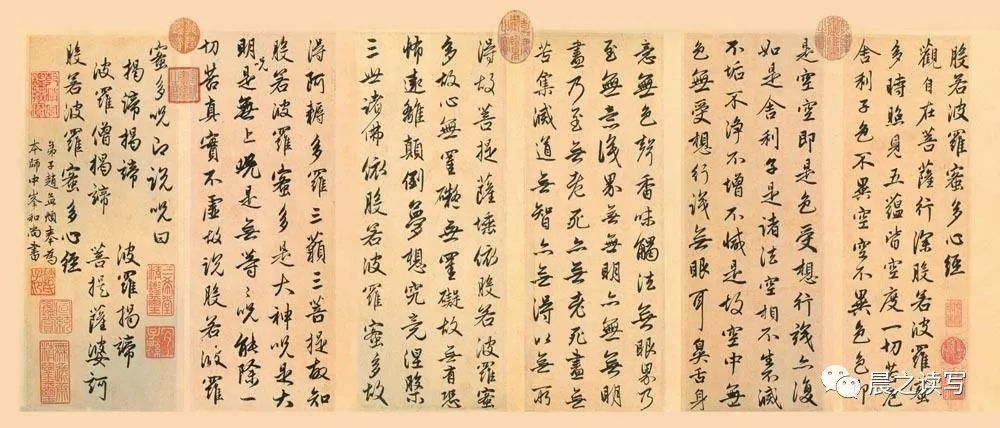 般若波羅蜜多心經
觀自在菩薩行深般若波羅蜜
多時照見五蘊皆空度一切苦厄
舍利子色不異空空不異色色即
是空空即是色受想行識亦復
如是舍利子是諸法空相不生不滅
不垢不淨不增不減是故空中無
色無受想行識無眼耳鼻舌身
意無色聲香味觸法無眼界乃
至無意識界無無明亦無無明
盡乃至無老死亦無老死盡無
苦集滅道無智亦無得以無所
得故菩提薩埵依般若波羅蜜
多故心無罣礙無罣礙故無有恐
怖遠離顛倒夢想究竟涅槃
三世諸佛依般若波羅蜜多故
得阿耨多羅三藐三菩提故知
般若波羅蜜多是大神呪是大
明呪是無上呪是無等々呪能除一
切苦真實不虛故說般若波羅
蜜多呪即說呪曰
揭諦揭諦 波羅揭諦
波羅僧揭諦 菩提薩婆訶
般若波羅蜜多心經
弟子趙孟頫奉為
本師中峯和尚書
晨之读写